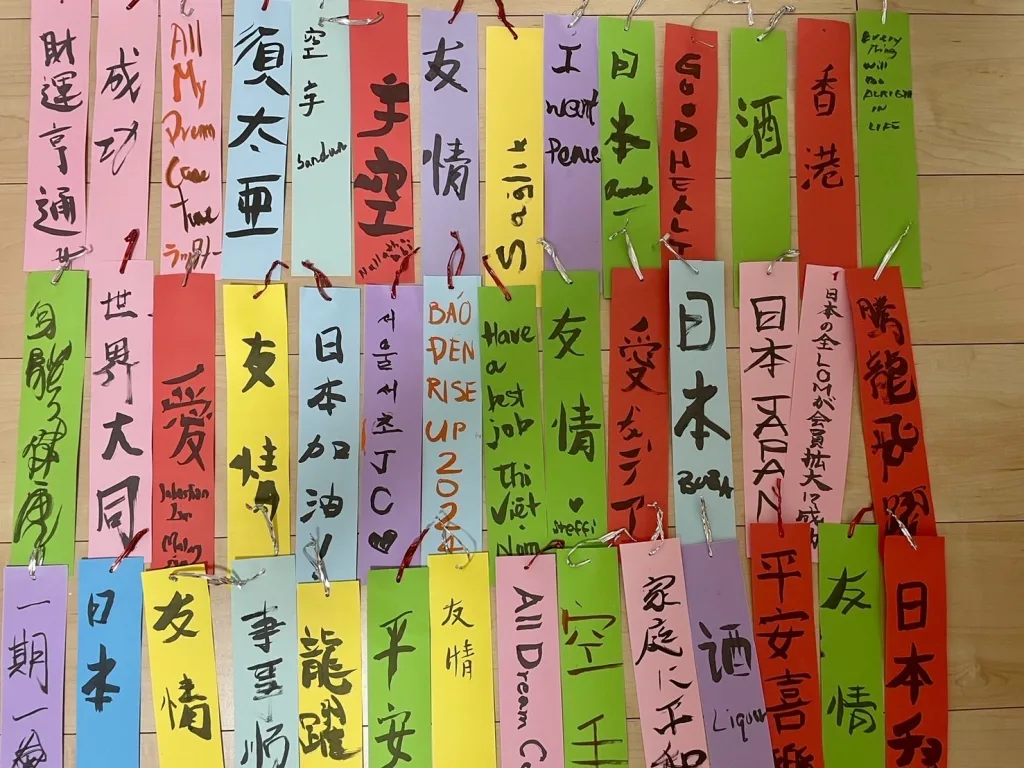 財運亨通
成功
All
My
Dream
Come
True
須太亜
空手
Sandun
手空
友情
I
want
Peace
日本
GOOD HEALT
酒
香港
Every
Thing
will
be
ALRIGHT
IN
LIFE
世界大同
愛
Sebastian
友情
日本加油!
서울서초JC♥
BẢO
ĐEN
RISE
UP
2024
Have
a
best
job
Thi
Việt
Nam
友情
♥
Steffi
愛
日本
日本 JAPAN
日本の全LOMが会員拡大に成
騰龍飛躍
一期一
日本
友情
事事順
龍躍
平安
友情
All Dream Co
空手
家庭に平和
酒
Liquor
平安喜樂
友情
日本チ